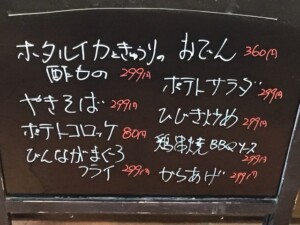 ホタルイカときゅうりの
酢もの 299円
やきそば 299円
ポテトコロッケ 80円
びんながまぐろ
フライ 299円
おでん 360円
ポテトサラダ 299円
ひじき炒め 299円
鶏串焼BBQソース
299円
からあげ 299円